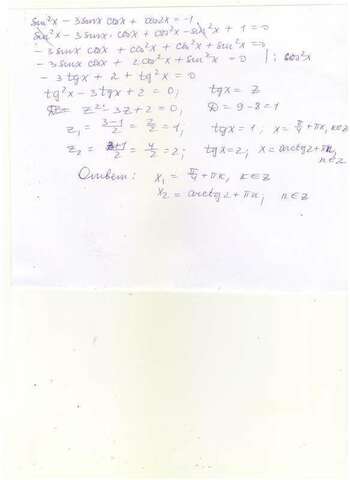 sin²x - 3sinx cosx + cos2x = -1
sin²x - 3sinx · cosx + cos²x - sin²x + 1 = 0
- 3sinx cosx + cos²x + cos²x + sin²x = 0
- 3sinx cosx + 2cos²x + sin²x = 0 | : cos²x
- 3tgx + 2 + tg²x = 0
tg²x - 3tgx + 2 = 0; tgx = z
z² - 3z + 2 = 0; D = 9 - 8 = 1
z₁ = 3-1/2 = 2/2 = 1; tgx = 1; x = π/4 + πk, k∈Z
z₂ = 3+1/2 = 4/2 = 2; tgx = 2; x = arctg2 + πn, n∈Z
Ответ: x₁ = π/4 + πk, k∈Z
x₂ = arctg2 + πn; n∈Z